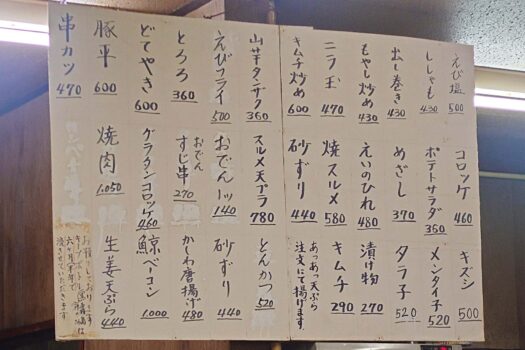 えび塩
500
ししゃも
430
出し巻き
430
もやし炒め
430
ニラ玉
470
キムチ炒め
600
山芋タンザク
360
えびフライ
500
とろろ
360
どてやき
600
豚平
600
串カツ
470
コロッケ
460
ポテトサラダ
350
めざし
370
えいのひれ
480
焼スルメ
580
砂ずり
440
スルメ天プラ
780
おでん一ッ
140
おでん
すじ串
270
グラタンコロッケ
460
焼肉
1,050
キズシ
500
メンタイ子
520
タラ子
520
漬け物
270
キムチ
290
あつあつ天ぷら
注文にて揚げます
とんかつ
520
砂ずり
440
かしわ唐揚げ
480
鯨ベーコン
1,000
生姜天ぷら
440